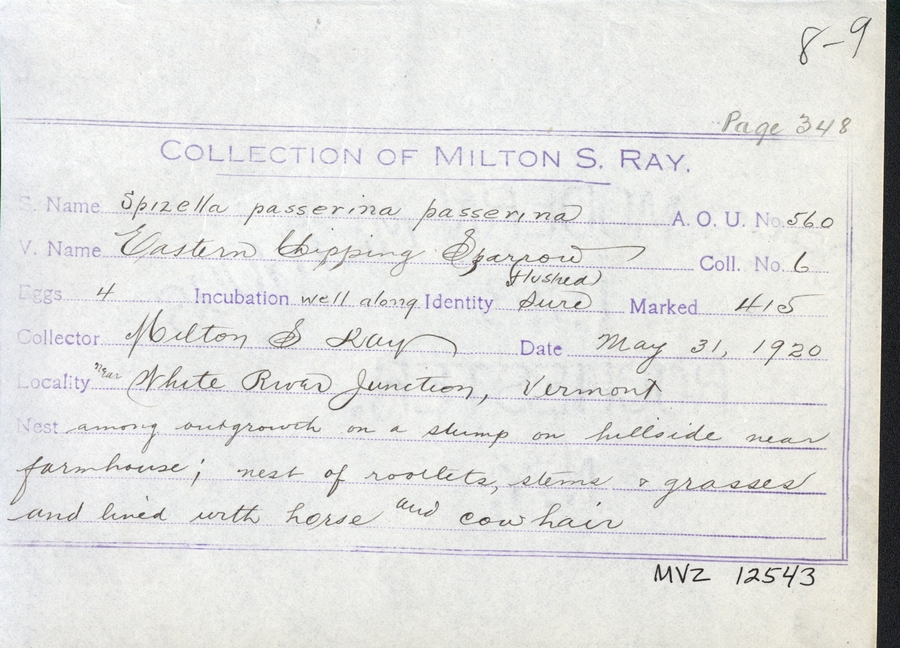 8-9
Page 348
COLLECTION OF MILTON S. RAY.
S. Name Spizella passerina passerina A. O. U. No. 560
V. Name Eastern Chipping Sparrow Coll. No. 6
(flushed)
Eggs 4 Incubation well along Identity sure Marked 415
Collector Milton S Ray Date May 31, 1920
Locality near White River Junction, Vermont
Nest among outgrowth on a stump on hillside near
farmhouse; nest of rootlets, stems & grasses
and lined with horse and cow hair
MVZ 12543